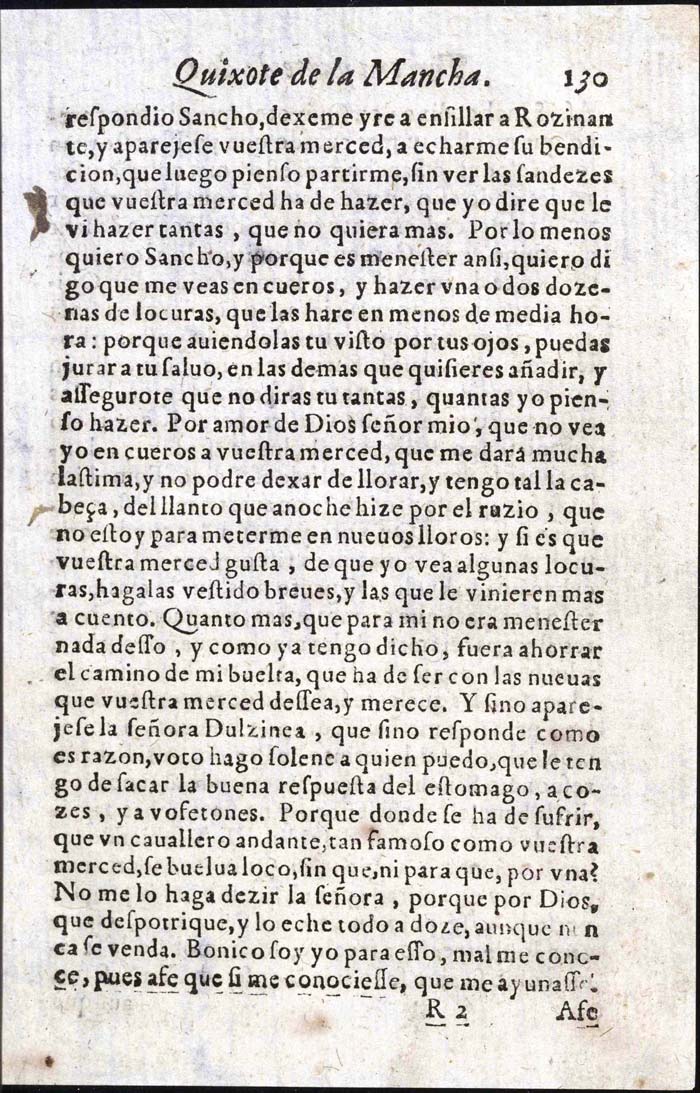 Quixote de la Mancha. 130
reſpondio Sancho, dexeme yre a enſillar a Rozinan
te, y aparejeſe vueſtra merced, a echarme ſu bendi-
cion, que luego pienſo partirme, ſin ver las ſandezes
que vueſtra merced ha de hazer, que yo dire que le
vi hazer tantas, que no quiera mas. Por lo menos
quiero Sancho, y porque es meneſter anſi, quiero di
go que me veas en cueros, y hazer vna o dos doze-
nas de locuras, que las hare en menos de media ho-
ra: porque auiendolas tu viſto por tus ojos, puedas
jurar a tu ſaluo, en las demas que quiſieres añadir, y
aſſegurote que no diras tu tantas, quantas yo pien-
ſo hazer. Por amor de Dios ſeñor mio, que no vea
yo en cueros a vueſtra merced, que me dará mucha
laſtima, y no podre dexar de llorar, y tengo tal la ca-
beça, del llanto que anoche hize por el ruzio, que
no eſtoy para meterme en nueuos lloros: y ſi es que
vueſtra merced guſta, de que yo vea algunas locu-
ras, hagalas veſtido breues, y las que le vinieren mas
a cuento. Quanto mas, que para mi no era meneſter
nada deſſo, y como ya tengo dicho, fuera ahorrar
el camino de mi buelta, que ha de ſer con las nueuas
que vueſtra merced deſſea, y merece. Y ſino apare-
jeſe la ſeñora Dulzinea, que ſino reſponde como
es razon, voto hago ſolene a quien puedo, que le ten
go de ſacar la buena reſpueſta del eſtomago, a co-
zes, y a vofetones. Porque donde ſe ha de ſufrir,
que vn cauallero andante, tan famoſo como vueſtra
merced, ſe buelua loco, ſin que, ni para que, por vna?
No me lo haga dezir la ſeñora, porque por Dios,
que deſpotrique, y lo eche todo a doze, aunque nun
ca ſe venda. Bonico ſoy yo para eſſo, mal me cono-
ce, pues afe que ſi me conocieſſe, que me ayunaſſe.
R 2 Afe